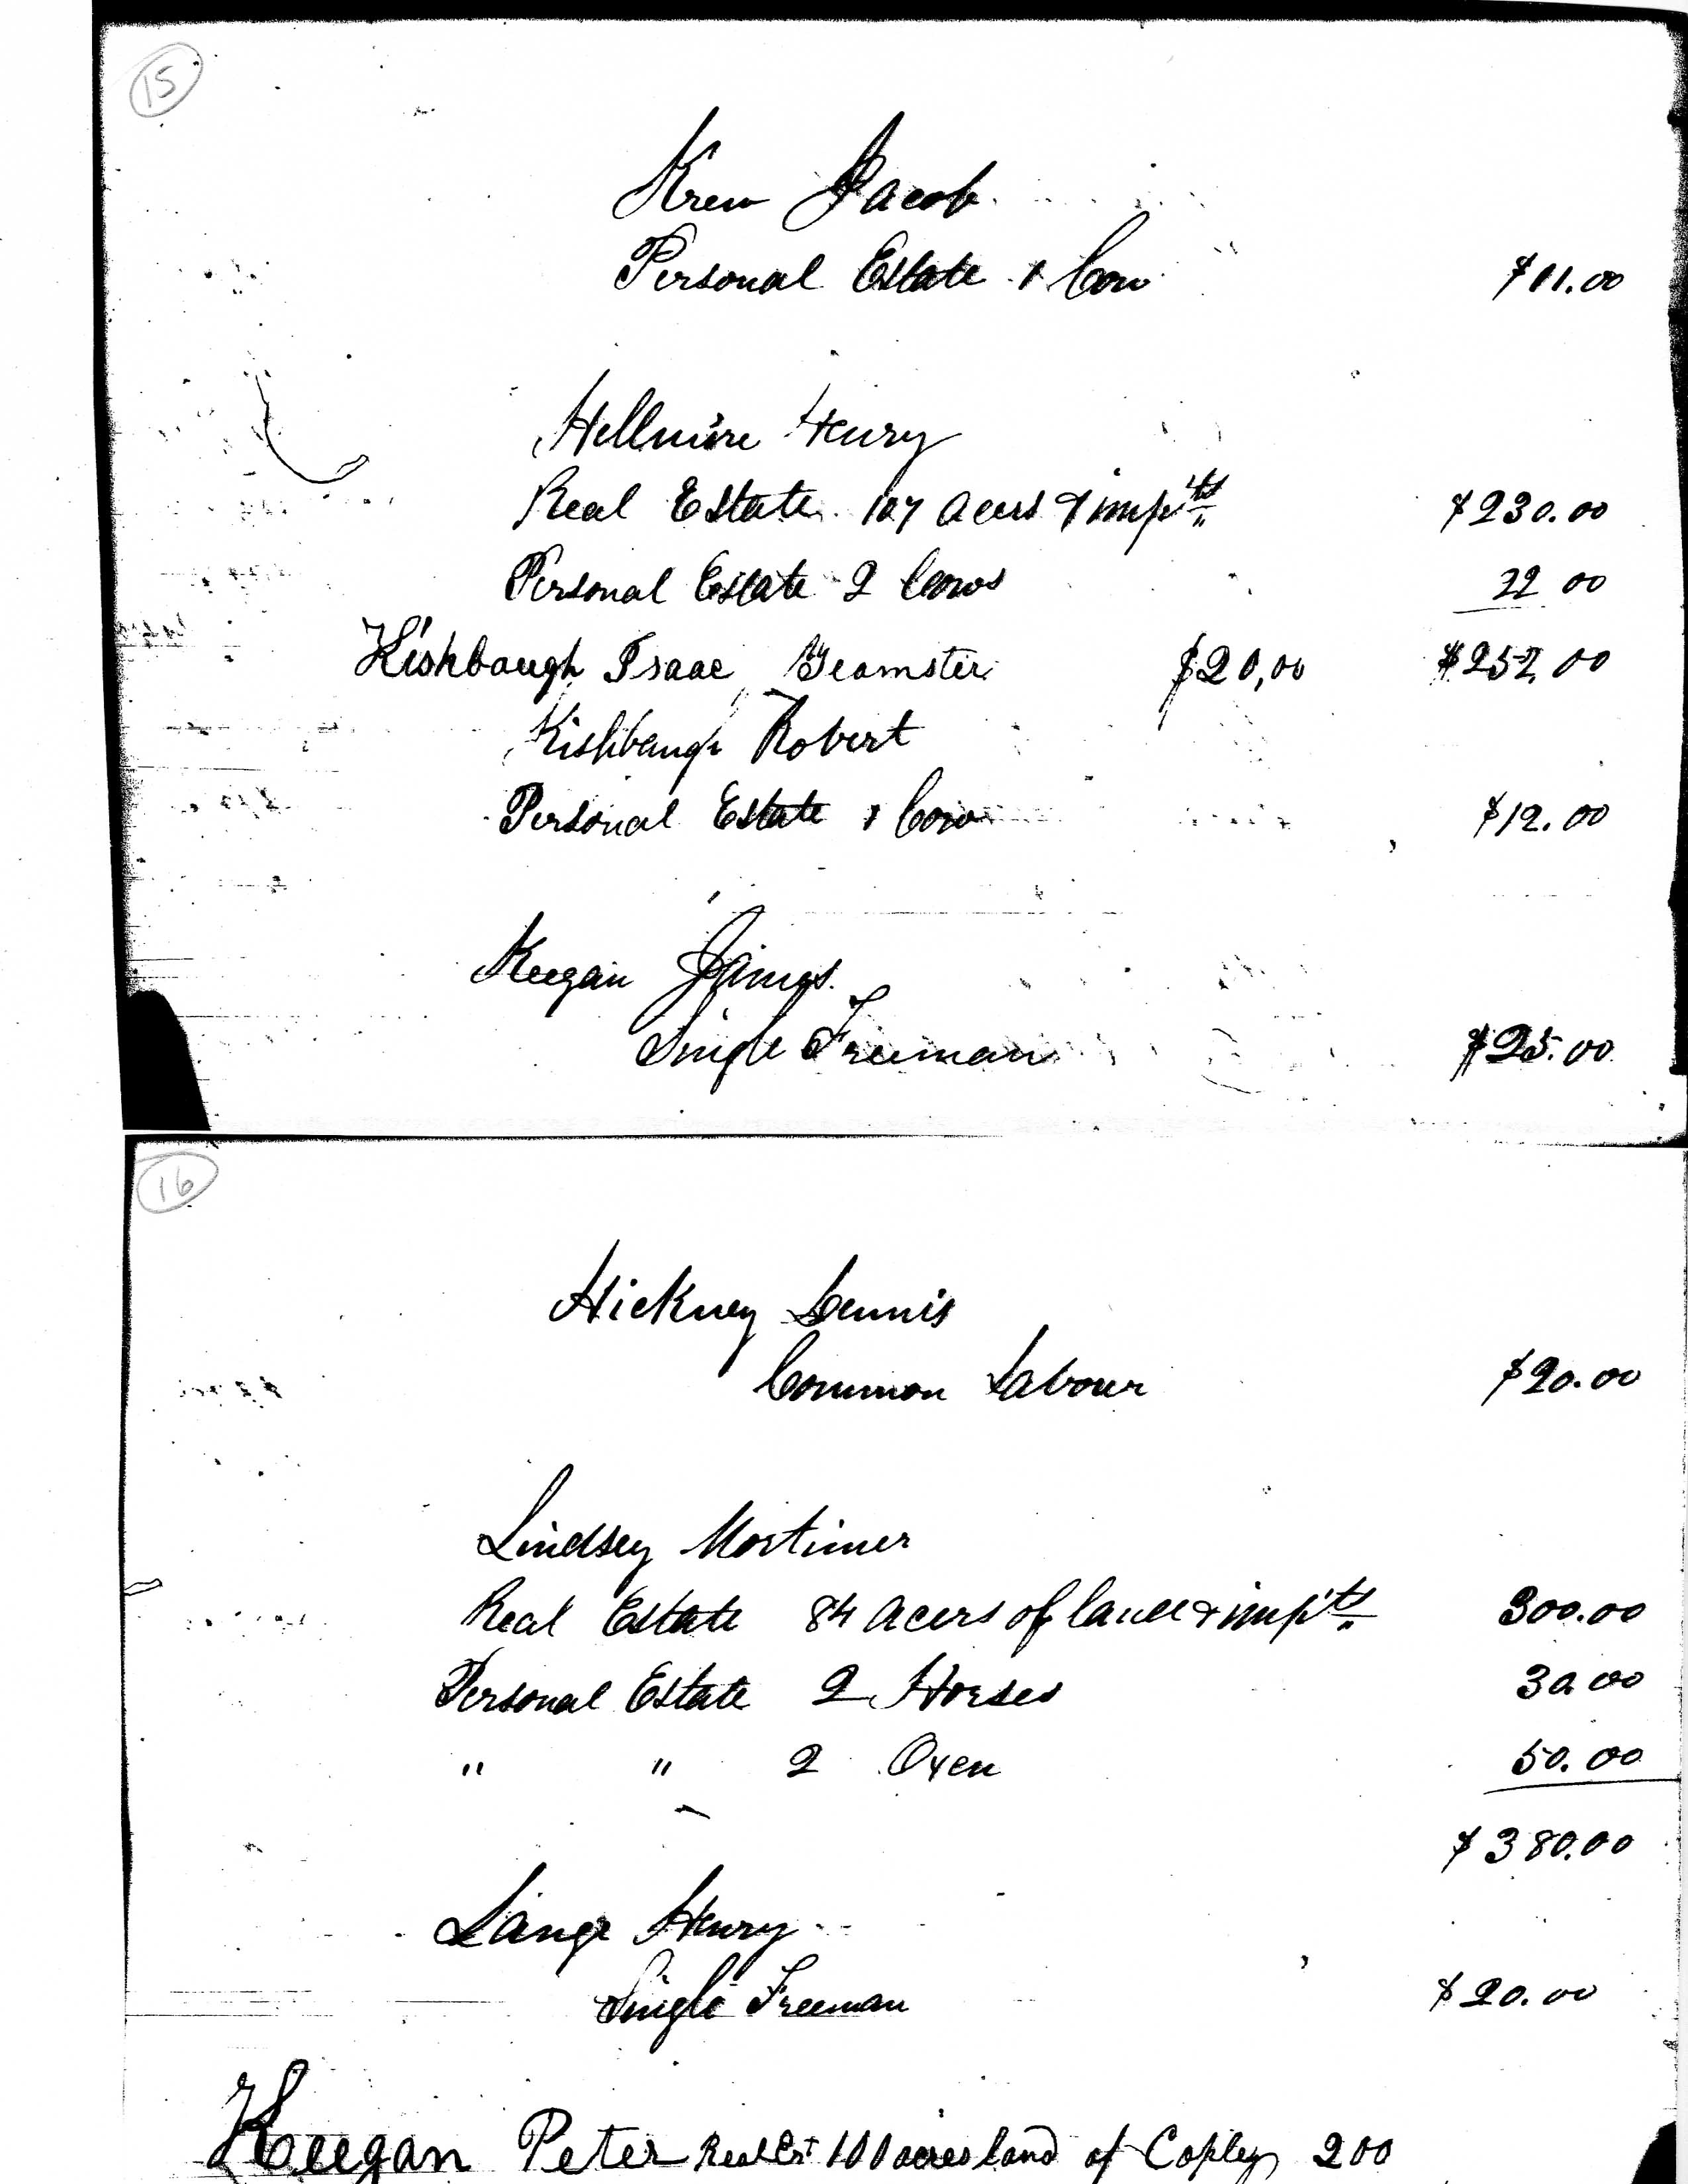 15
Krew Jacob
Personal Estate 1 Cow $11.00
Hellmire Henry
Real Estate 107 Acers & imp'ts $230.00
Personal Estate 2 Cows 22 00
Kishbaugh Isaac Teamster $20,00 $252,00
Kishbaugh Robert
Personal Estate 1 Cow $12.00
Keegan James
Single Freeman $25.00
16
Hickney Dennis
Common Labour $20.00
Lindsey Mortimer
Real Estate 84 Acers of land & imp'ts 300.00
Personal Estate 2 Horses 30 00
" " 2 Oxen 50.00
$380.00
Lange Henry
Single Freeman $20.00
Keegan Peter Real Est 100 acres land of Copley 200